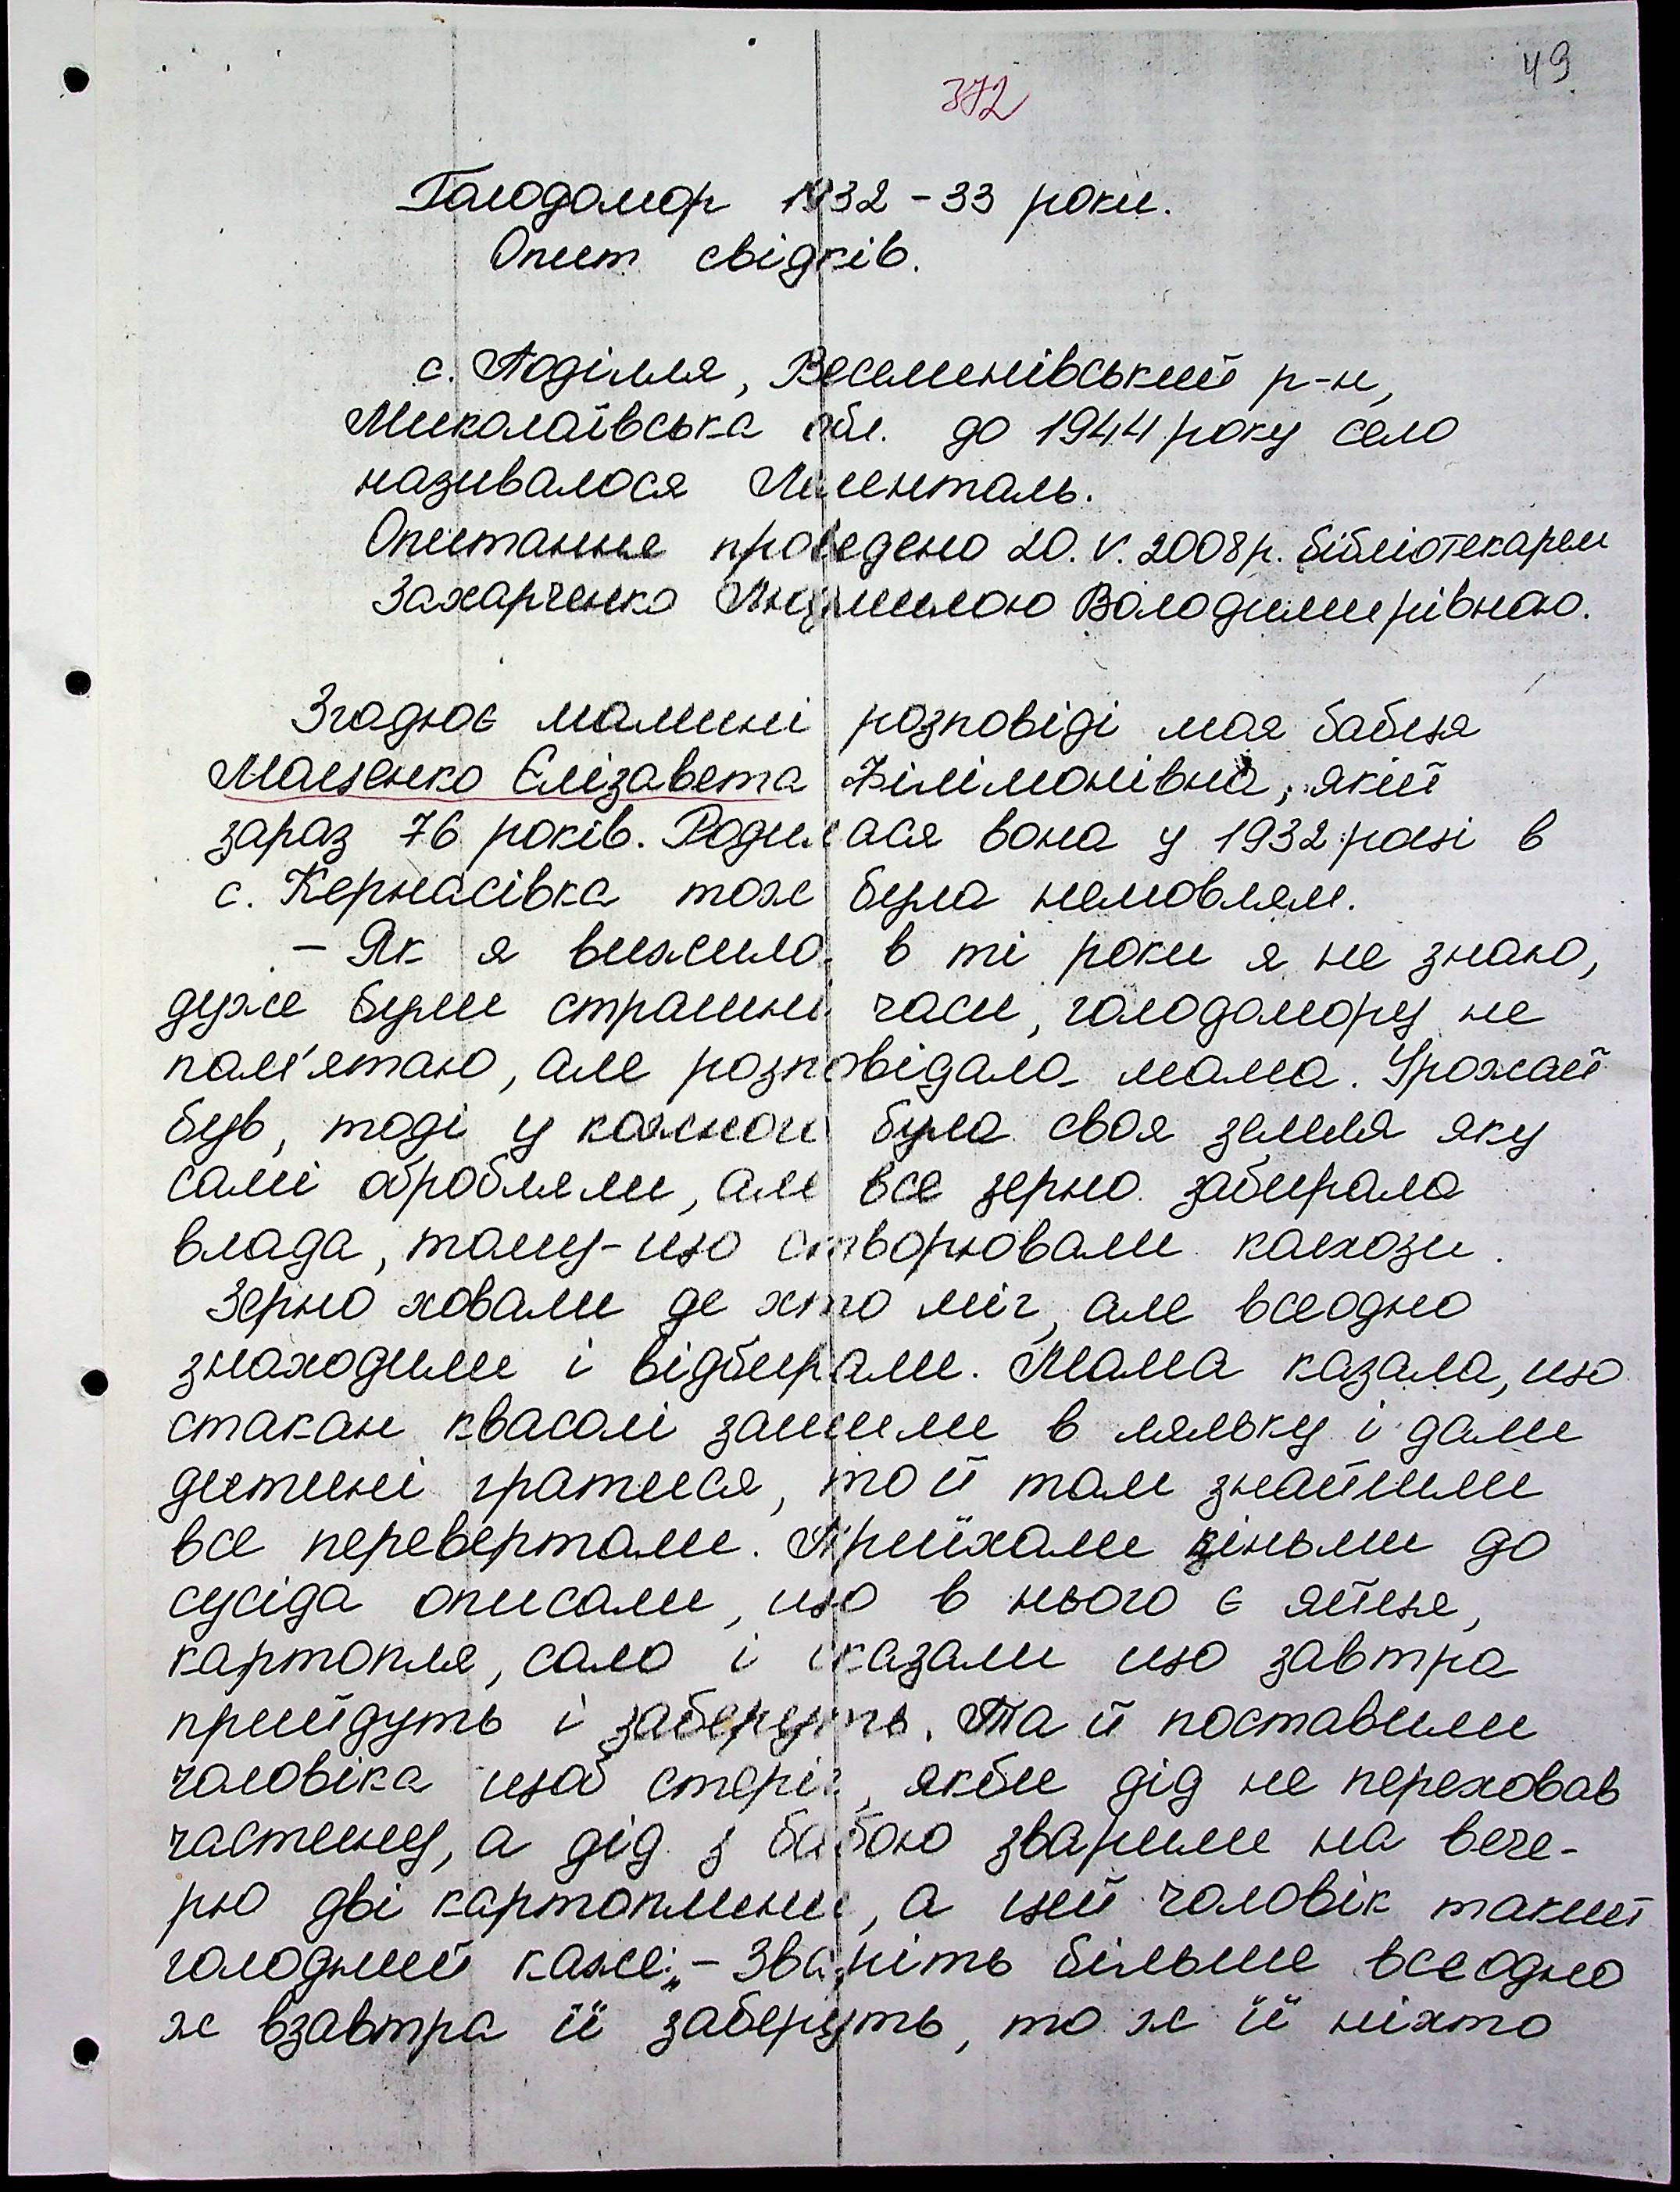 49
372
Голодомор 1932-33 роки.
Опит свідків.
с. Поділля, Веселинівський р-н,
Миколаївська обл. до 1944 року село
називалося Ліленталь.
Опитання проведено 20.V.2008р. бібліотекарем
Захарченко Людмилою Володимирівною.
Згадює мамині розповіді моя бабуся
Маценко Єлізавета Філімонівна, якій
зараз 76 років. Родилася вона у 1932 році в
с. Кернасівка тож була немовлям.
- Як я вижила в ті роки я не знаю,
дуже були страшні часи, голодомору не
пам'ятаю, але розповідала мама. Урожай
був, тоді у кожного була своя земля яку
самі обробляли, але все зерно забирала
влада, тому-що створювали калхози.
Зерно ховали де хто міг, але всеодно
знаходили і відбирали. Мама казала, що
стакан квасолі зашили в ляльку і дали
дитині гратися, то й там знайшли
все перевертали. Приїхали кіньми до
сусіда описали, що в нього є яйця,
картопля, сало і сказали що завтра
прийдуть і заберуть. Та й поставили
чоловіка щоб стеріг, якби дід не переховав
частину, а дід з бабою зварили на вече-
рю дві картоплини, а цей чоловік такий
голодний каже: „- Зваріть більше всеодно
ж взавтра її заберуть, то ж її ніхто